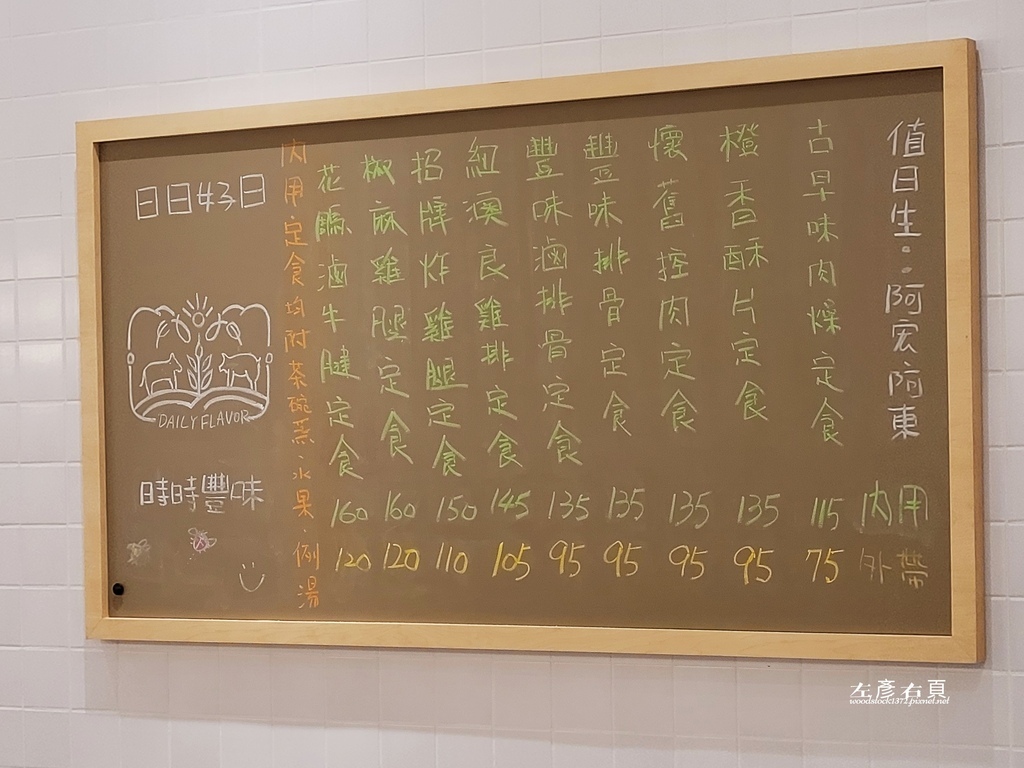 值日生：阿宏阿東
內用
外帶
古早味肉燥定食
115
75
橙香酥片定食
135
95
懷舊控肉定食
135
95
豐味排骨定食
135
95
豐味滷排骨定食
135
95
紅澳良雞排定食
145
105
招牌炸雞腿定食
150
110
椒麻雞腿定食
160
120
花膶滷牛腱定食
160
120
內用定食均附茶碗蒸.水果.例湯
日日好日
DAILY FLAVOR
時時豐味
左彥右頁
woodstock1372.pixnet.net